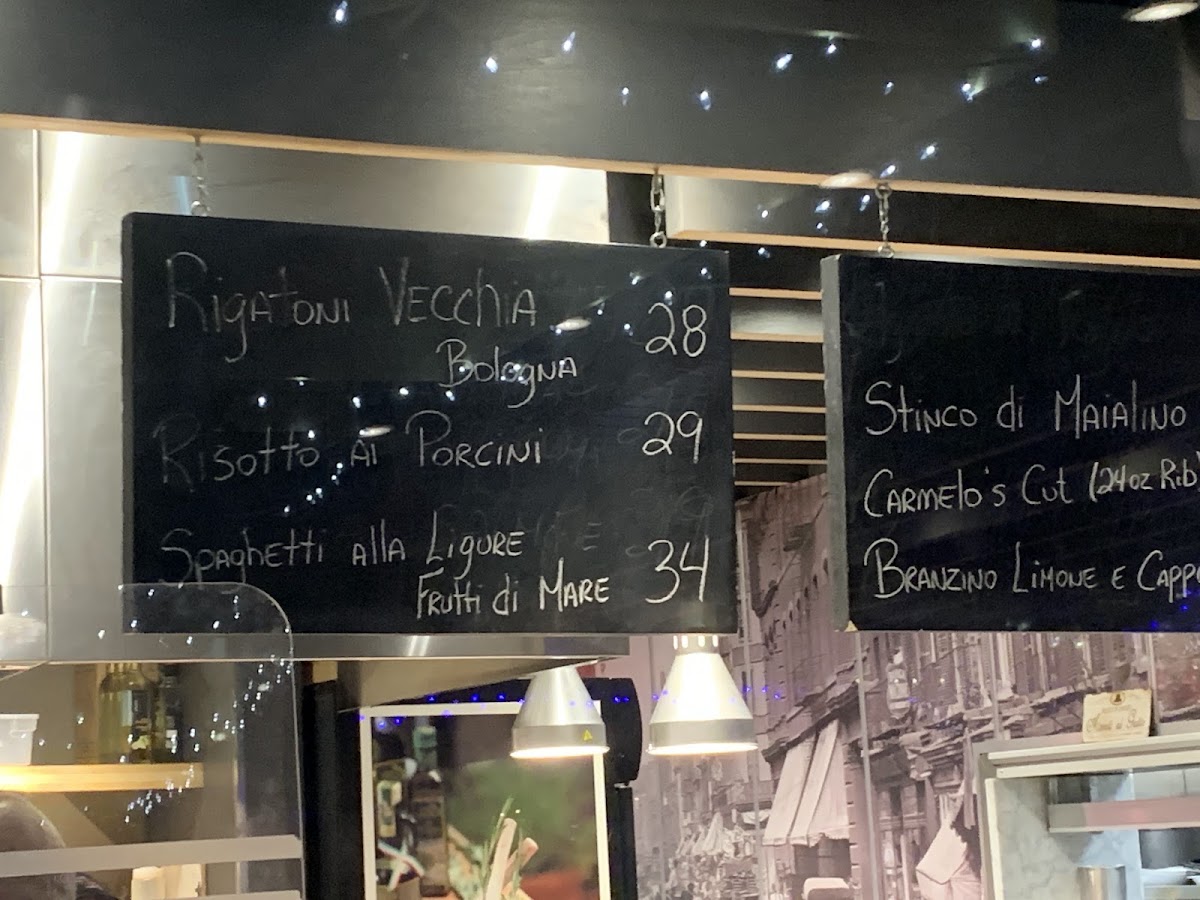 Rigatoni Vecchia 28
Bologna
Risotto ai Porcini 29
Spaghetti alla Ligure
Frutti di Mare 34
Stinco di Maialino
Carmelo's Cut (24oz Rib)
Branzino Limone e